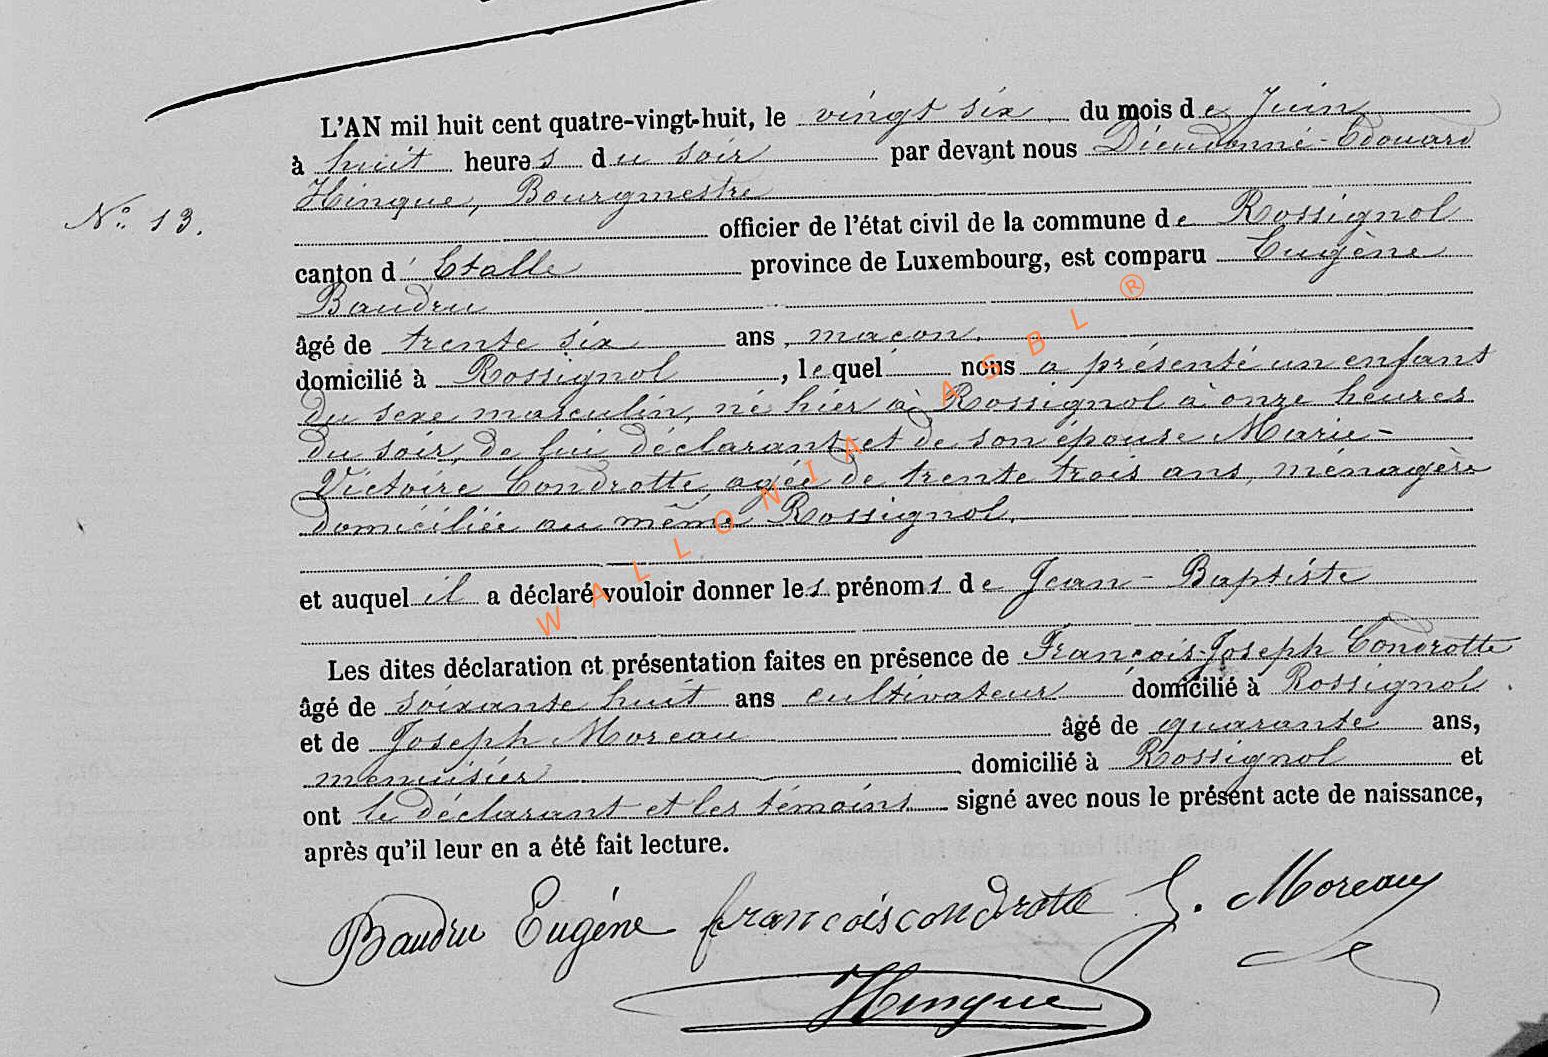 L'AN mil huit cent quatre-vingt-huit, le vingt six du mois de Juin
à huit heures du soir par devant nous Dieudonné-Edouard
Hinque, Bourgmestre
N° 13.
officier de l'état civil de la commune de Rossignol
canton d'Etalle province de Luxembourg, est comparu Eugène
Baudru
âgé de trente six ans, maçon,
domicilié à Rossignol, lequel nous a présenté un enfant
du sexe masculin, né hier à Rossignol à onze heures
du soir, de lui déclarant et de son épouse Marie-
Victoire Condrotte, agée de trente trois ans, ménagère
domiciliée au même Rossignol.
et auquel il a déclaré vouloir donner les prénoms de Jean-Baptiste
Les dites déclaration et présentation faites en présence de François-Joseph Condrotte
âgé de soixante huit ans cultivateur domicilié à Rossignol
et de Joseph Moreau âgé de quarante ans,
menuisier domicilié à Rossignol et
ont le déclarant et les témoins signé avec nous le présent acte de naissance,
après qu'il leur en a été fait lecture.
Baudru Eugéne francoiscondrotte J. Moreau
Hinque
WALLONIA ASBL ®